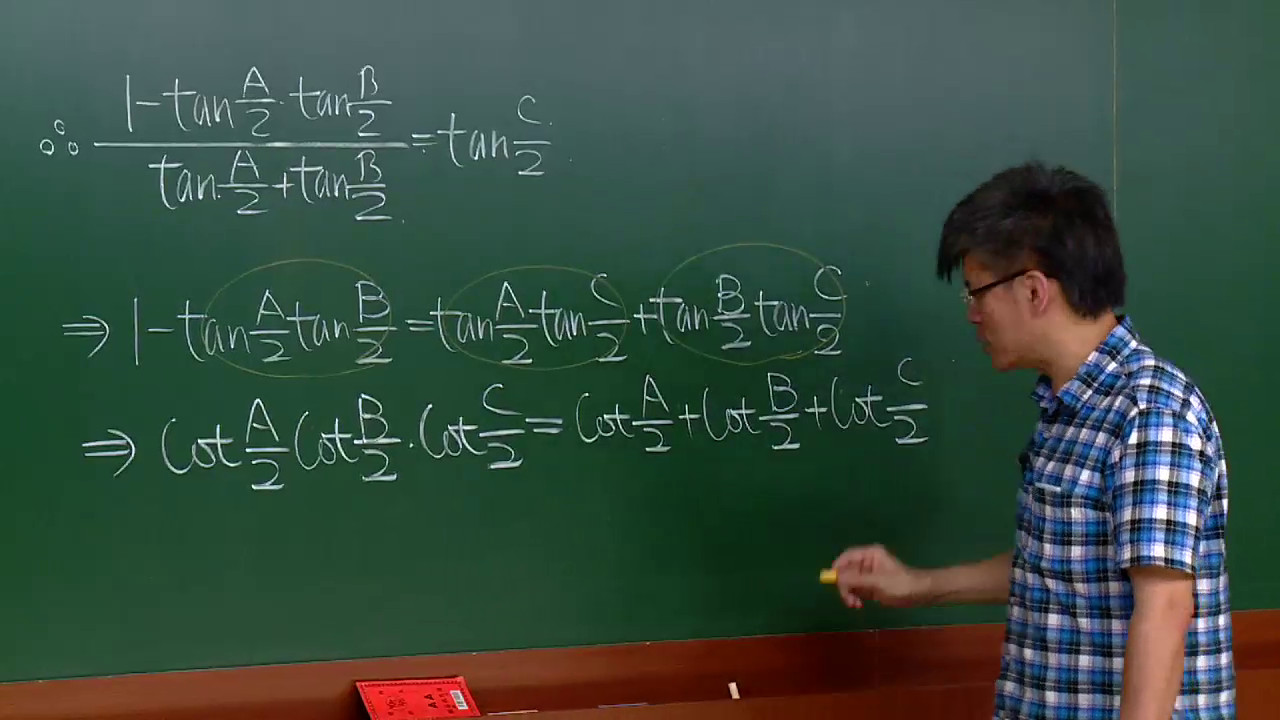 ∴ (1-tan A/2 · tan B/2)/(tan A/2 + tan B/2) = tan C/2
⇒ 1-tan A/2 tan B/2 = tan A/2 tan C/2 + tan B/2 tan C/2
⇒ cot A/2 cot B/2 · cot C/2 = cot A/2 + cot B/2 + cot C/2